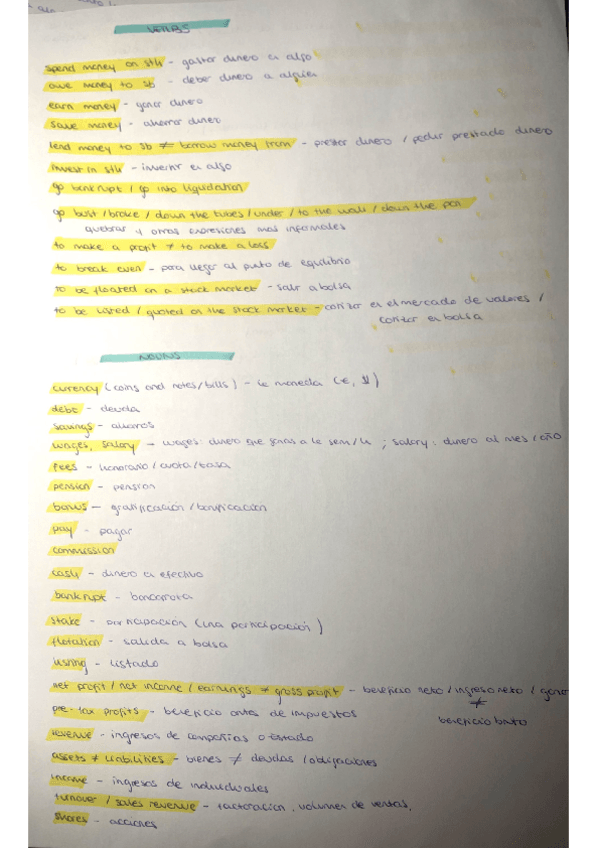 VERBS
spend money on sth - gastar dinero en algo
owe money to sb - deber dinero a alguien
earn money - ganar dinero
save money - ahorrar dinero
lend money to sb ≠ borrow money from - prestar dinero / pedir prestado dinero
invest in sth - invertir en algo
go bankrupt / go into liquidation
go bust / broke / down the tubes / under / to the wall / down the pan
quebrar y otras expresiones mas informales
to make a profit ≠ to make a loss
to break even - para llegar al punto de equilibrio
to be floated on a stock market - salir a bolsa
to be listed / quoted on the stock market - cotizar en el mercado de valores /
cotizar en bolsa
NOUNS
currency (coins and notes/bills) - la moneda (€, $)
debt - deuda
savings - ahorros
wages, salary - wages: dinero que ganas a la sem/h ; salary: dinero al mes / año
fees - honorario / cuota / tasa
pension - pension
bonus - gratificación / bonificación
pay - pagar
commission
cash - dinero en efectivo
bankrupt - bancarrota
stake - participacion (una participación)
flotation - salida a bolsa
listing - listado
net profit / net income / earnings ≠ gross profit - beneficio neto / ingreso neto / ganar
≠
pre-tax profits - beneficio antes de impuestos
beneficio bruto
revenue - ingresos de compañias o estado
assets ≠ liabilities - bienes ≠ deudas / obligaciones
income - ingresos de individuales
turnover / sales revenue - facturacion, volumen de ventas.
shares - acciones